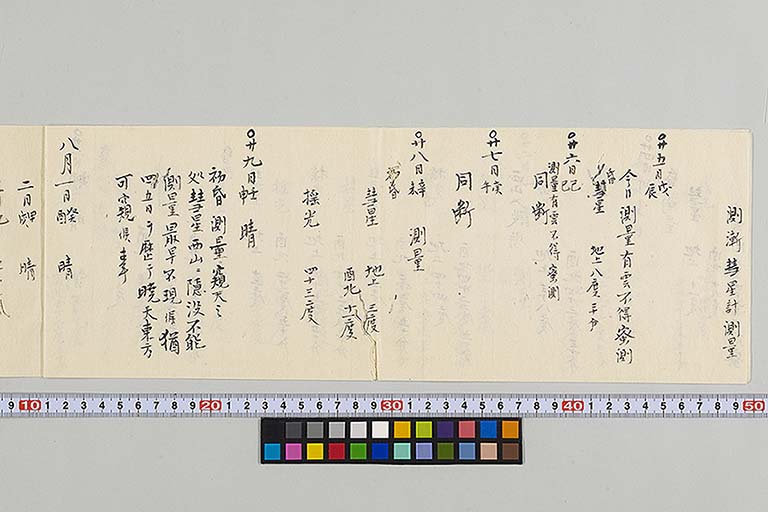 測漸彗星計測量
○廿五日戊辰
今日測量有雲不得蜜測
昏彗星 地上八度三十分
○廿六日己巳
測量有雲不得蜜測
同断
○廿七日庚午
同断
○廿八日辛未 測量
初昏
彗星 地上 三度
酉北 十二度
揺光 四十三度
○廿九日壬申 晴
初昏測量窺天之
処彗星西山ニ隠没不能
測量最早不現候猶
四五日ヲ歴テ暁天東方
可窺候事
八月一日癸酉 晴
二日甲戌 晴
9 10 1 2 3 4 5 6 7 8 9 20 1 2 3 4 5 6 7 8 9 30 1 2 3 4 5 6 7 8 9 40 1 2 3 4 5 6 7 8 9 50